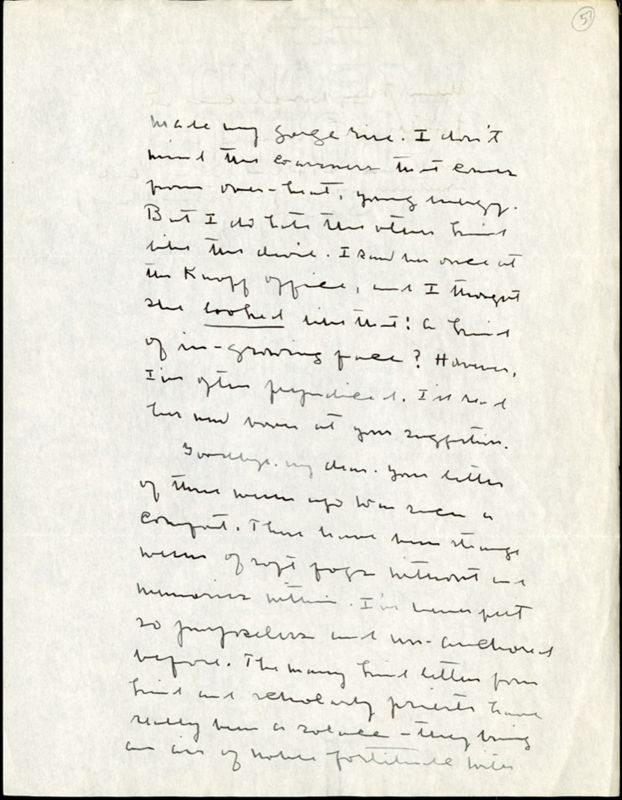 5
made my gorge rise. I don't
mind the coarseness that comes
from over-heat, young energy.
But I do hate the other kind
like the devil. I saw her once at
the Knopf office, and I thought
she looked like that! A kind
of in-growing face? However,
I'm often prejudiced. I'll read
her new novel at your suggestion.
Goodbye, my dear. Your letter
of three weeks ago was such a
comfort. These have been strange
weeks of soft fogs without and
memories within. I've never felt
so purposeless and un-anchored
before. The many kind letters from
kind and scholarly priests have
really been a solace - they bring
an air of noble fortitude with